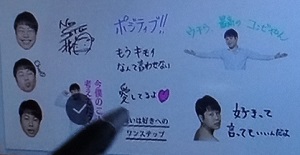 ポジティブ!!
もうキモイ
なんて言わせない
ウチら、最高の
コンビやん
今後のこ
考え
愛してるよ
いは好きへの
ワンステップ
好きって
言ってもいいんだよ